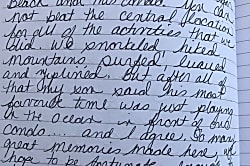 beach and this condo. You can
not beat the central location
for all of the activities that we
did. We snorkeled, hiked
mountains, surfed, luaued
and ziplined. But after all of
that my son said his most
favourite time was just playing
in the ocean in front of the
condo.... and I agree. So many
great memories made here. I
hope to be fortunate